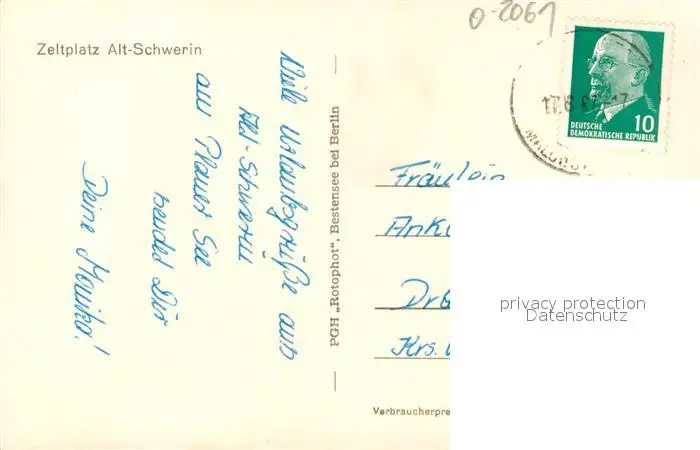 Zeltplatz Alt-Schwerin
Viele Urlaubsgrüße aus
Alt-Schwerin
am Plauer See
sendet Dir
Deine Monika!
PGH „Rotophot", Bestensee bei Berlin
0-2061
17.8.6
DEUTSCHE
DEMOKRATISCHE REPUBLIK
10
Fräulein
Ank
Dr
Krs.
Verbraucherpre
privacy protection
Datenschutz